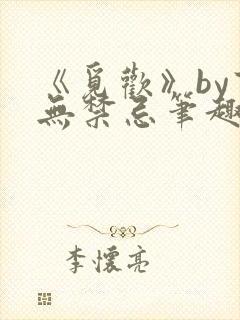 《覓歡》by
無禁忌筆趣
李懷亮